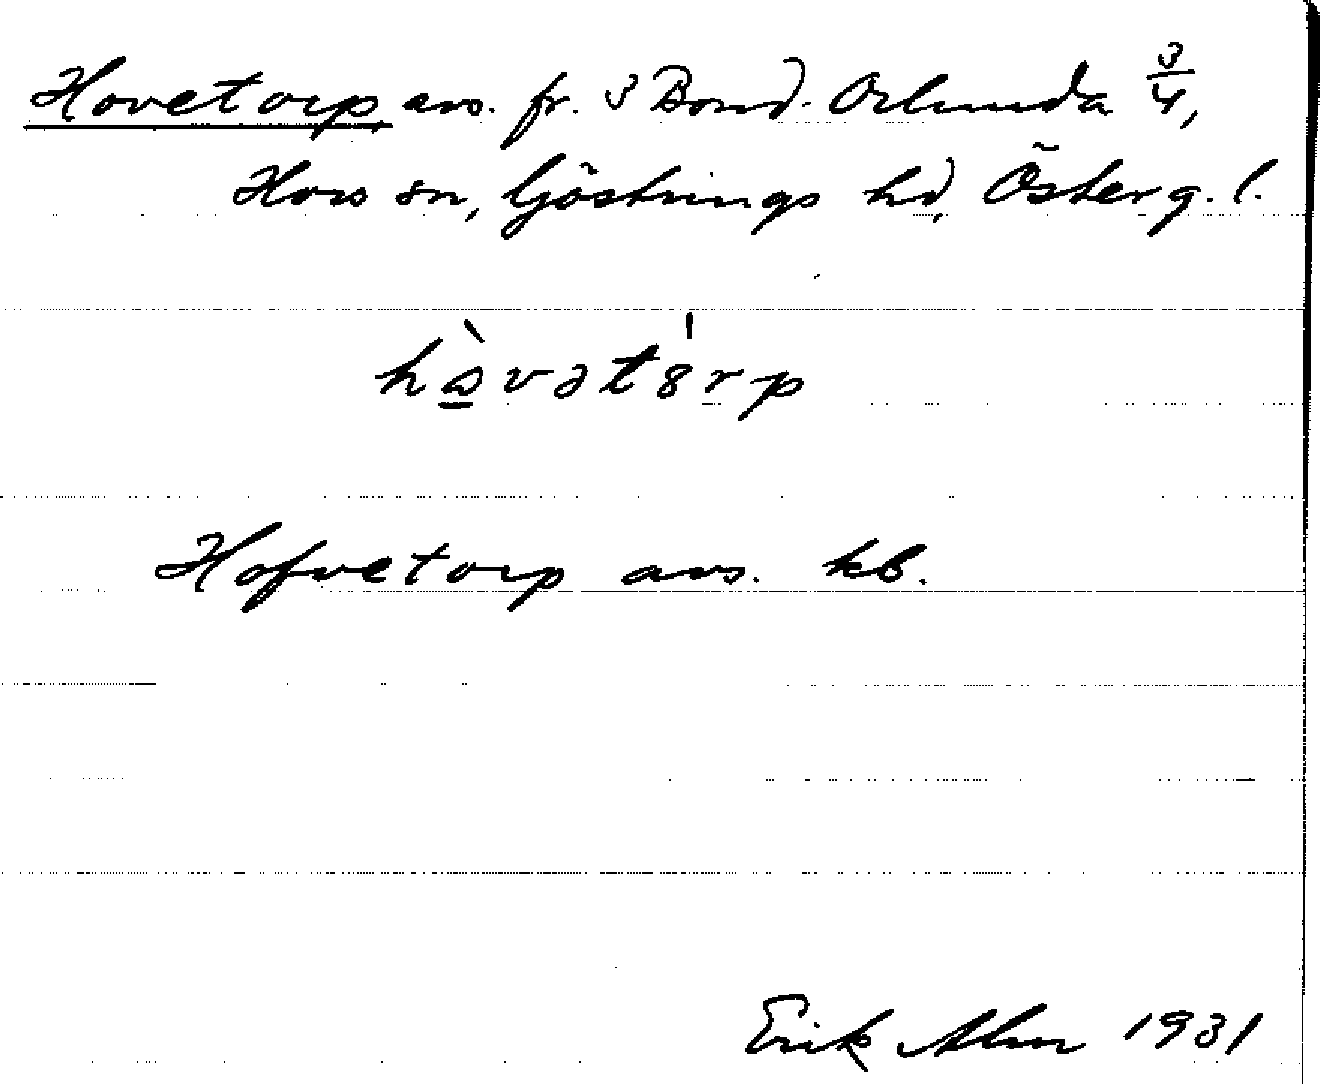 Hovetorp, avs. fr. 3 Bond. Orlunda 3/4,
Hovs sn, Göstrings hd, Österg. l.
hàvətórp
Hofvetorp avs. kb.
Erik Alm 1931